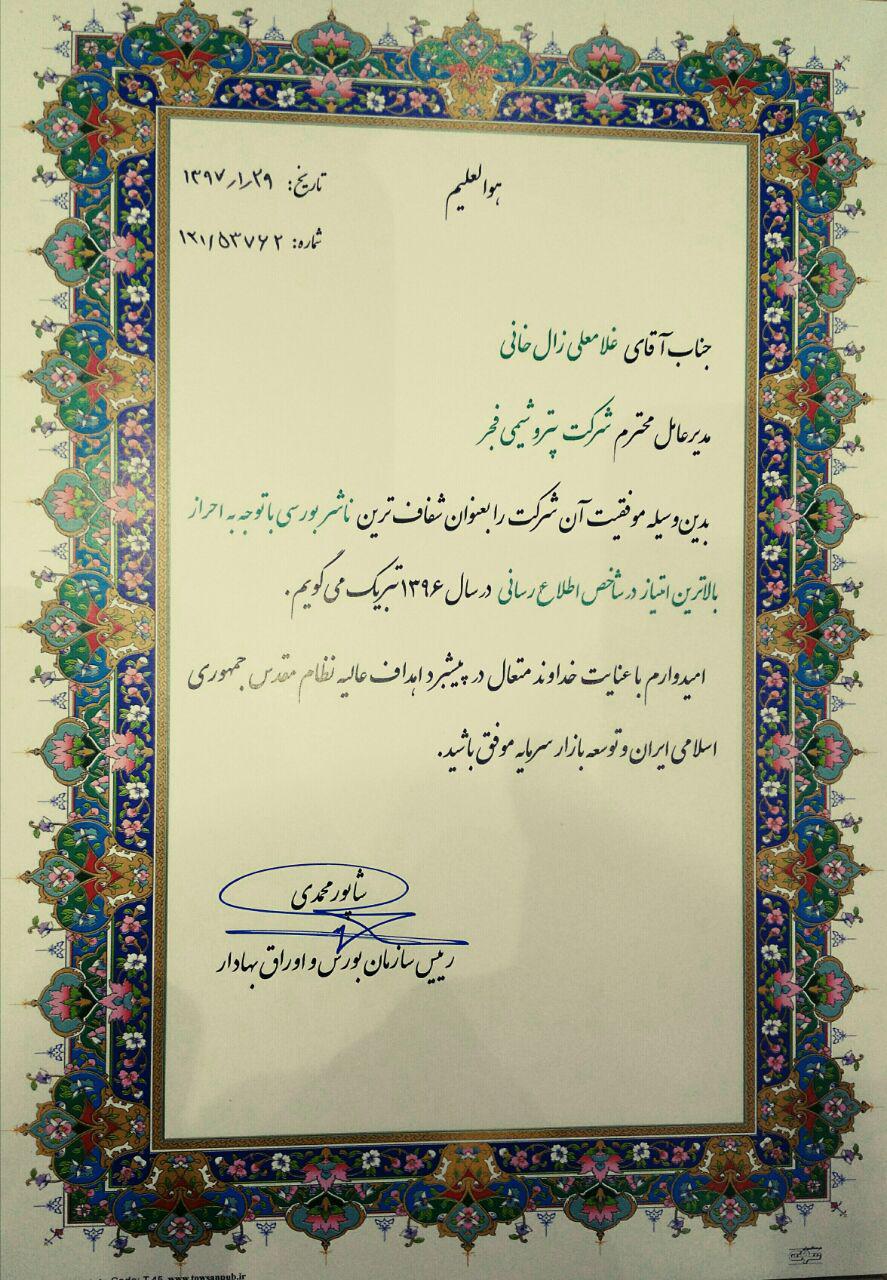 هوالعلیم
تاریخ: ۱۳۹۷/۱/۲۹
شماره: ۱۲۱/۵۳۷۶۲
جناب آقای غلامعلی زال خانی
مدیرعامل محترم شرکت پتروشیمی فجر
بدین وسیله موفقیت آن شرکت را بعنوان شفاف ترین ناشر بورسی با توجه به احراز
بالاترین امتیاز در شاخص اطلاع رسانی در سال ۱۳۹۶ تبریک می گویم.
امیدوارم با عنایت خداوند متعال در پیشبرد اهداف عالیه نظام مقدس جمهوری
اسلامی ایران و توسعه بازار سرمایه موفق باشید.
شاپور محمدی
رییس سازمان بورس و اوراق بهادار
Code: T.45 www.towsanpub.ir